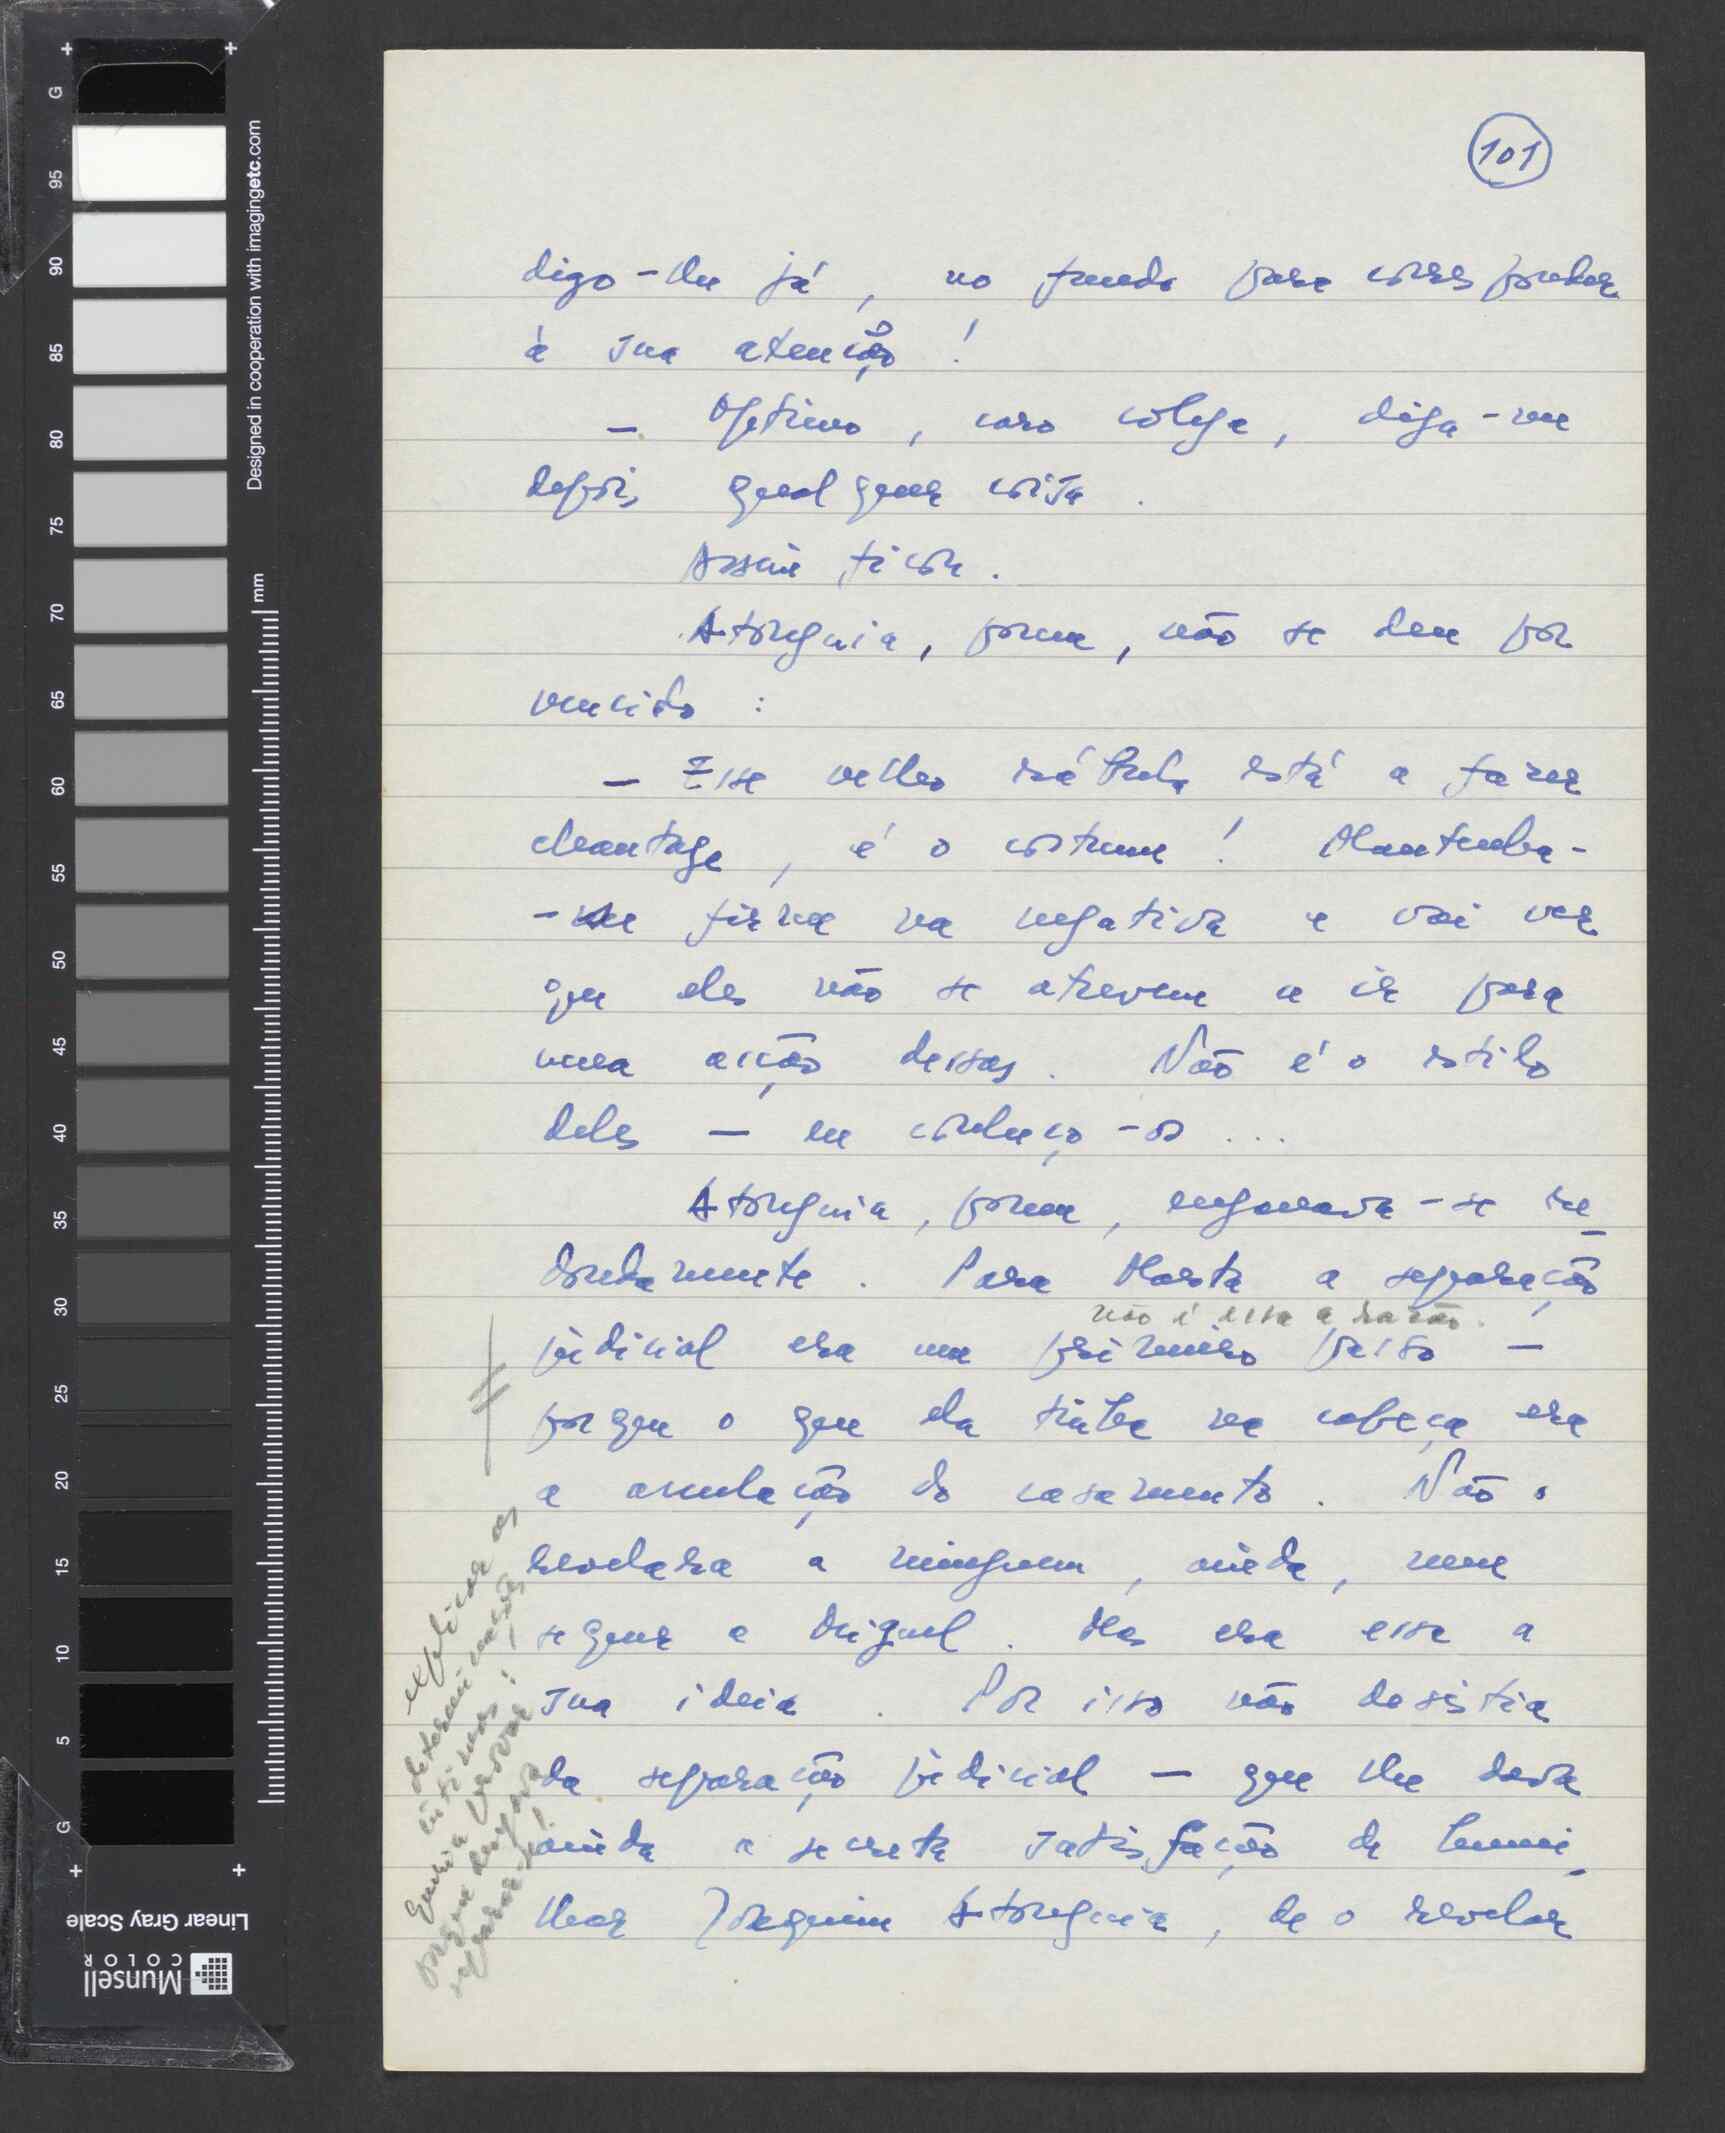 101
digo-lhe já, no fundo para corresponder
à sua atenção!
— Optimo, caro colega, diga-me
depois qualquer coisa.
Assim ficou.
Atouguia, porem, não se deu por
vencido:
— Esse velho rábula está a fazer
chantage, é o costume! Mantenha-
-se firme na negativa e vai ver
que eles não se atrevem a ir para
uma acção dessas. Não é o estilo
deles — eu conheço-os...
Atouguia, porem, enganava-se re-
dondamente. Para Marta a separação
não é essa a razão.
judicial era um primeiro passo —
porque o que ela tinha na cabeça era
a anulação do casamento. Não o
revelara a ninguem, ainda, nem
sequer a Miguel. Mas era essa a
sua ideia. Por isso não desistia
da separação judicial — que lhe dava
ainda a secreta satisfação de humi-
lhar Joaquim Atouguia, de o revelar
explicar as
determinações
intimas!
Queria provar
porque desejava
separar-se!
Designed in cooperation with imagingetc.com
mm
G
95
90
85
80
75
70
65
60
55
50
45
40
35
30
25
20
15
10
5
G
Linear Gray Scale
Munsell
COLOR